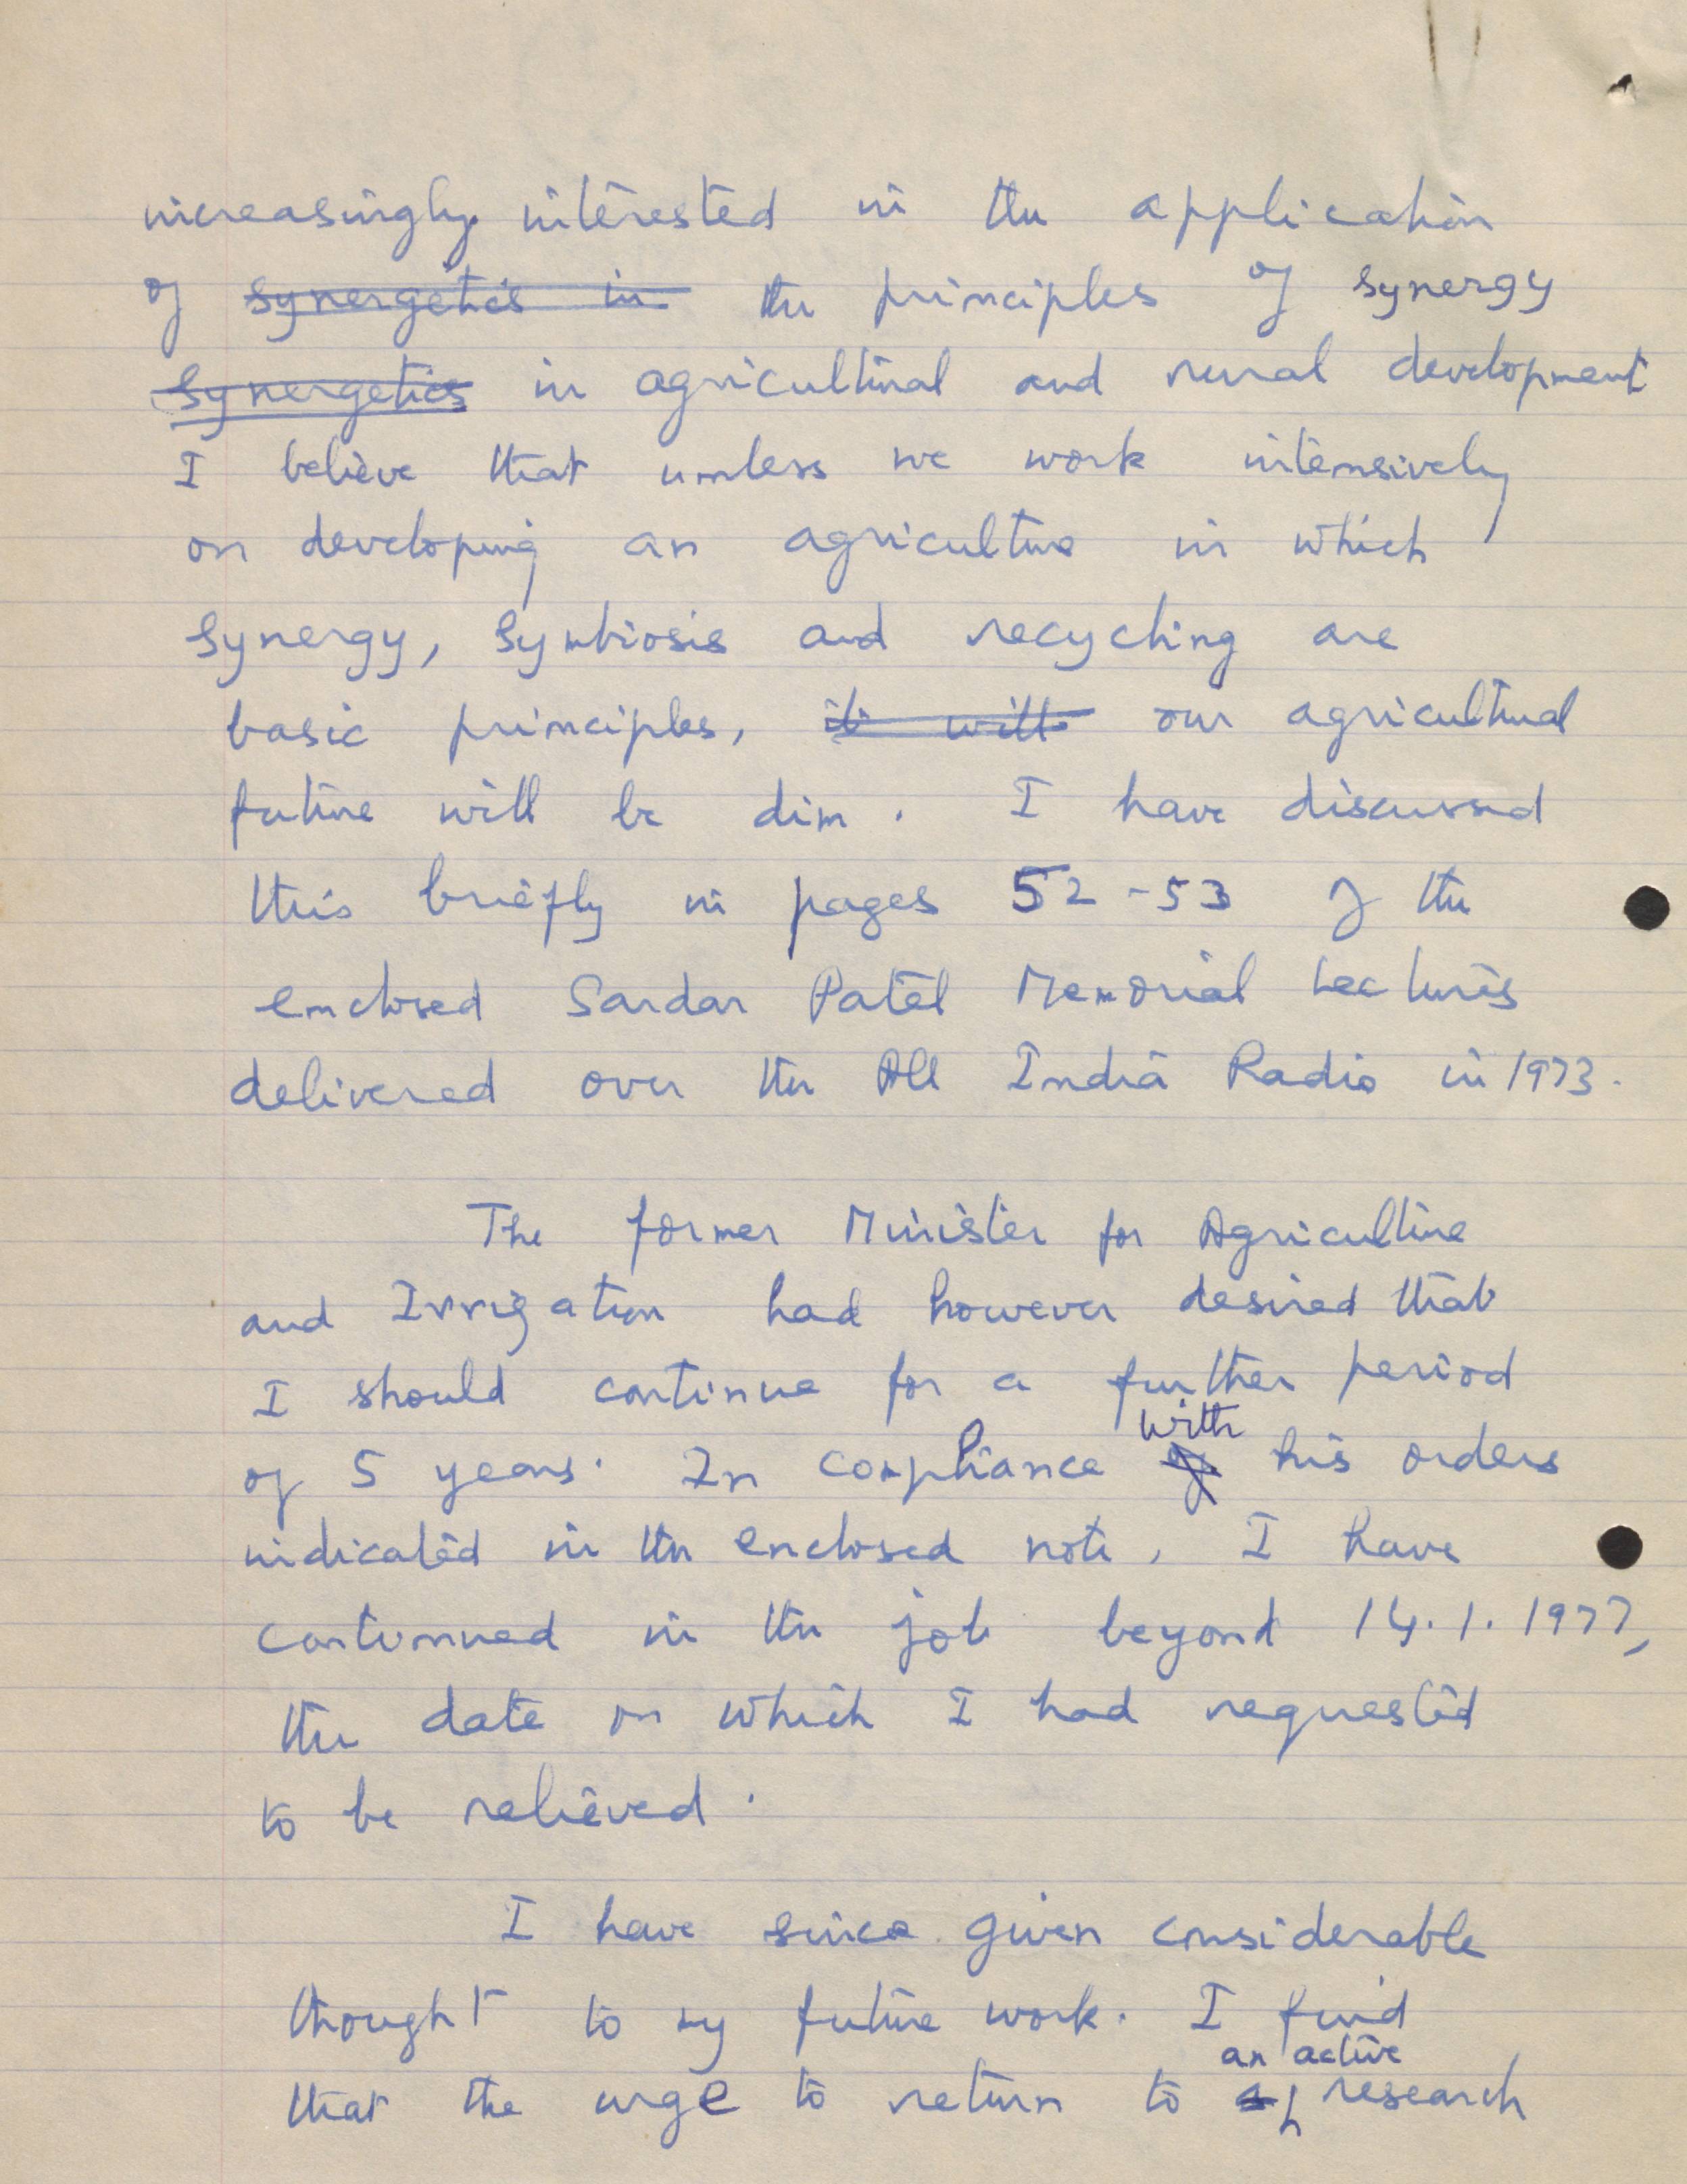 increasingly interested in the application
of synergetics in the principles of synergy
synergetics in agricultural and rural development
I believe that unless we work intensively
on developing an agriculture in which
synergy, symbiosis and recycling are
basic principles, it will our agricultural
future will be dim. I have discussed
this briefly in pages 52-53 of the
enclosed Sardar Patel Memorial Lectures
delivered over the All India Radio in 1973.
The former Minister for Agriculture
and Irrigation had however desired that
I should continue for a further period
with
of 5 years. In compliance of his orders
indicated in the enclosed note, I have
continued in the job beyond 14.1.1977,
the date on which I had requested
to be relieved.
I have since given considerable
thought to my future work. I find
an active
that the urge to return to a research